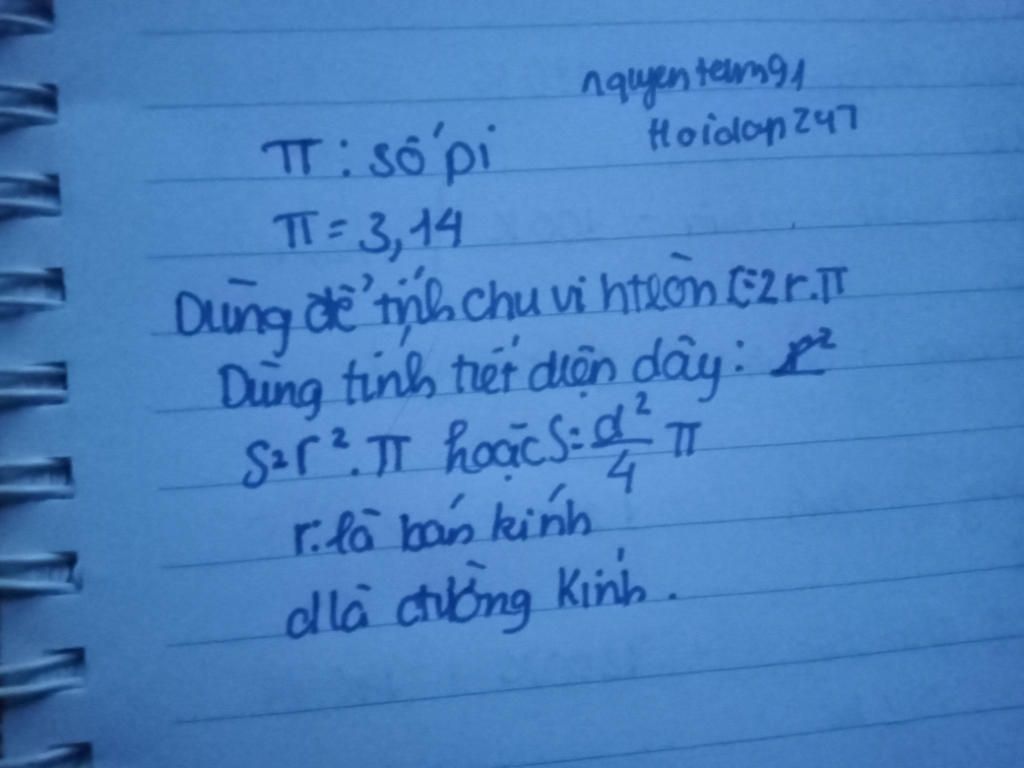 nguyentam91
Hoidap247
π : số pi
π = 3,14
Dùng để tính chu vi htròn C=2r.π
Dùng tính tiết diện dây: r²
S=r².π hoặc S=d²/4 π
r: là bán kính
d là đường kính.